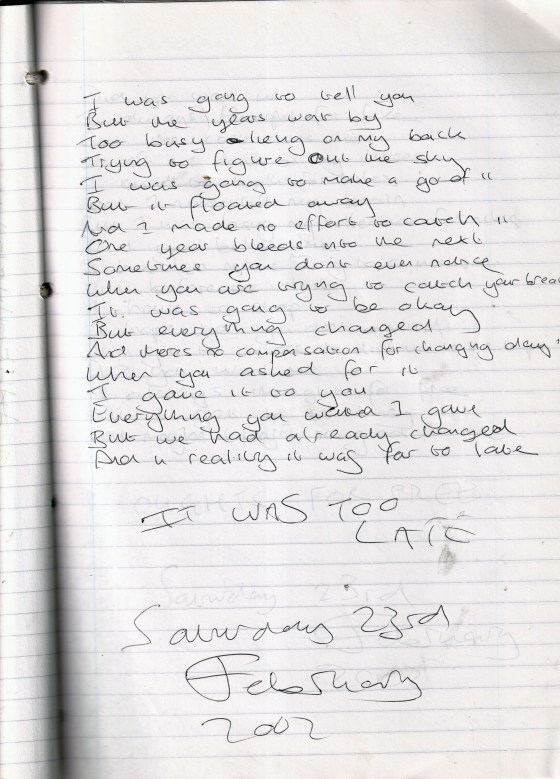 I was going to tell you
But the years went by
Too busy lieing on my back
Trying to figure out the sky
I was going to make a go of it
But it floated away
And I made no effort to catch it
One year bleeds into the next
Sometimes you dont even notice
When you are trying to catch your brea
It was going to be okay
But everything changed
And theres no compensation for changing days
When you asked for it
I gave it to you
Everything you wanted I gave
But we had already changed
And in reality it was far to late
IT WAS TOO
LATE
Saturday 23rd
February
2002